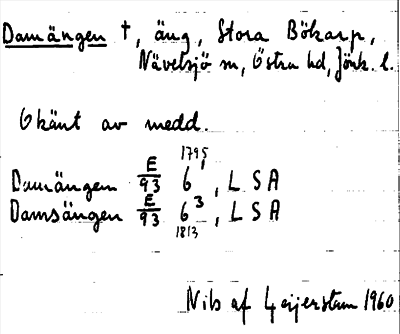 Damängen †, äng, Stora Bökarp,
Nävelsjö sn, Östra hd, Jönk. l.
Okänt av medd.
1795
Damängen E/93 6, LSA
Damsängen E/93 6³, LSA
1813
Nils af Geijerstam 1960